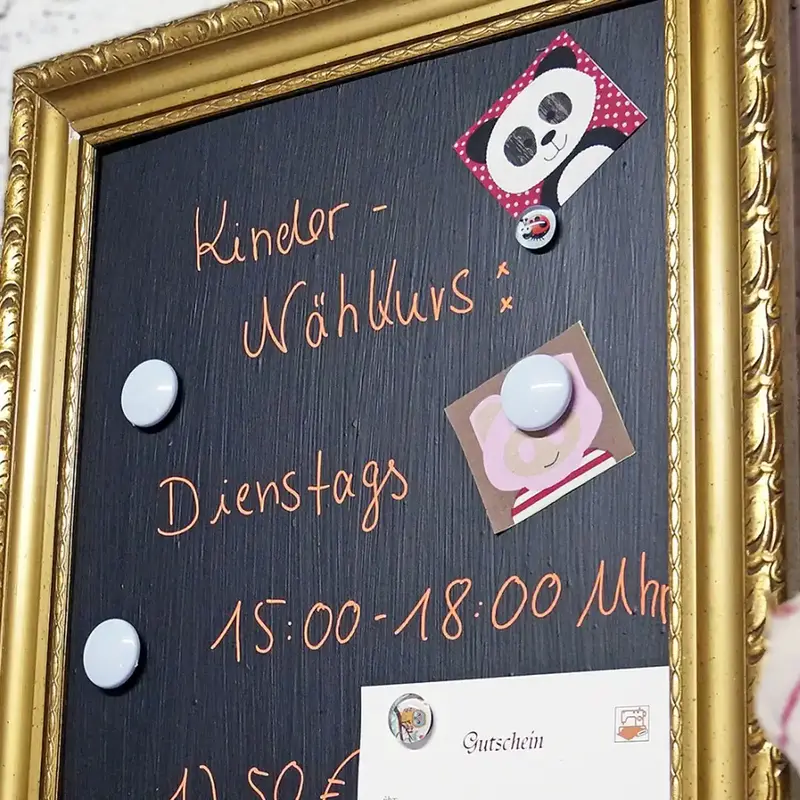 Kinder-
Nähkurs:
Dienstags
15:00-18:00 Uhr
Gutschein
über